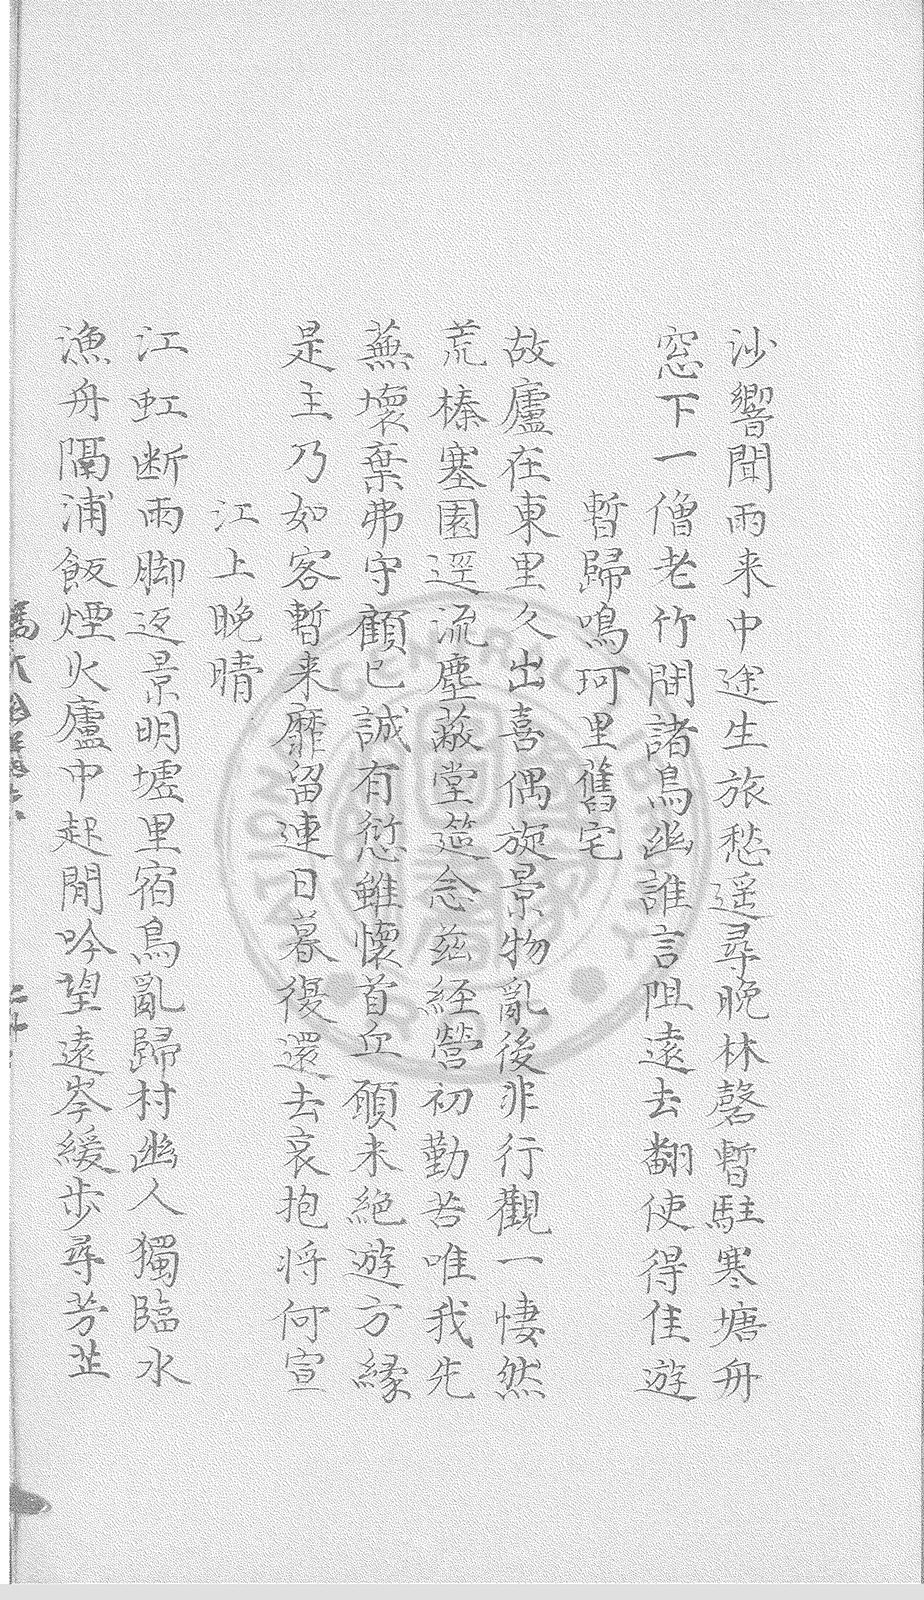 沙響聞雨来中途生旅愁遥尋晚林磬暫駐寒塘舟
窓下一僧老竹間諸鳥幽誰言阻遠去翻使得佳遊
暫歸鳴珂里舊宅
故廬在東里久出喜偶旋景物亂後非行觀一悽然
荒榛塞園逕流塵蔽堂筵念茲経營初勤苦唯我先
蕪壞棄弗守顧已誠有愆雖懷首丘願未絶遊方縁
是主乃如客暫来靡留連日暮復還去哀抱将何宣
江上晚晴
江虹断雨脚返景明墟里宿鳥亂歸村幽人獨臨水
漁舟隔浦飯煙火廬中起閒吟望遠岑緩步尋芳芷